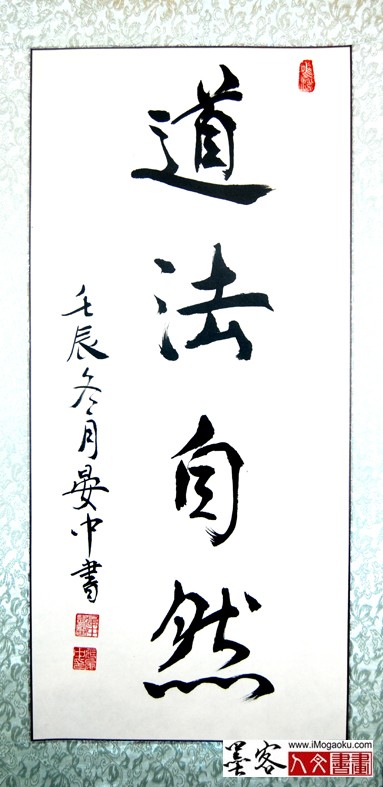 道法自然
壬辰冬月晏中書
墨客
www.iMogaoku.com
人文書畫